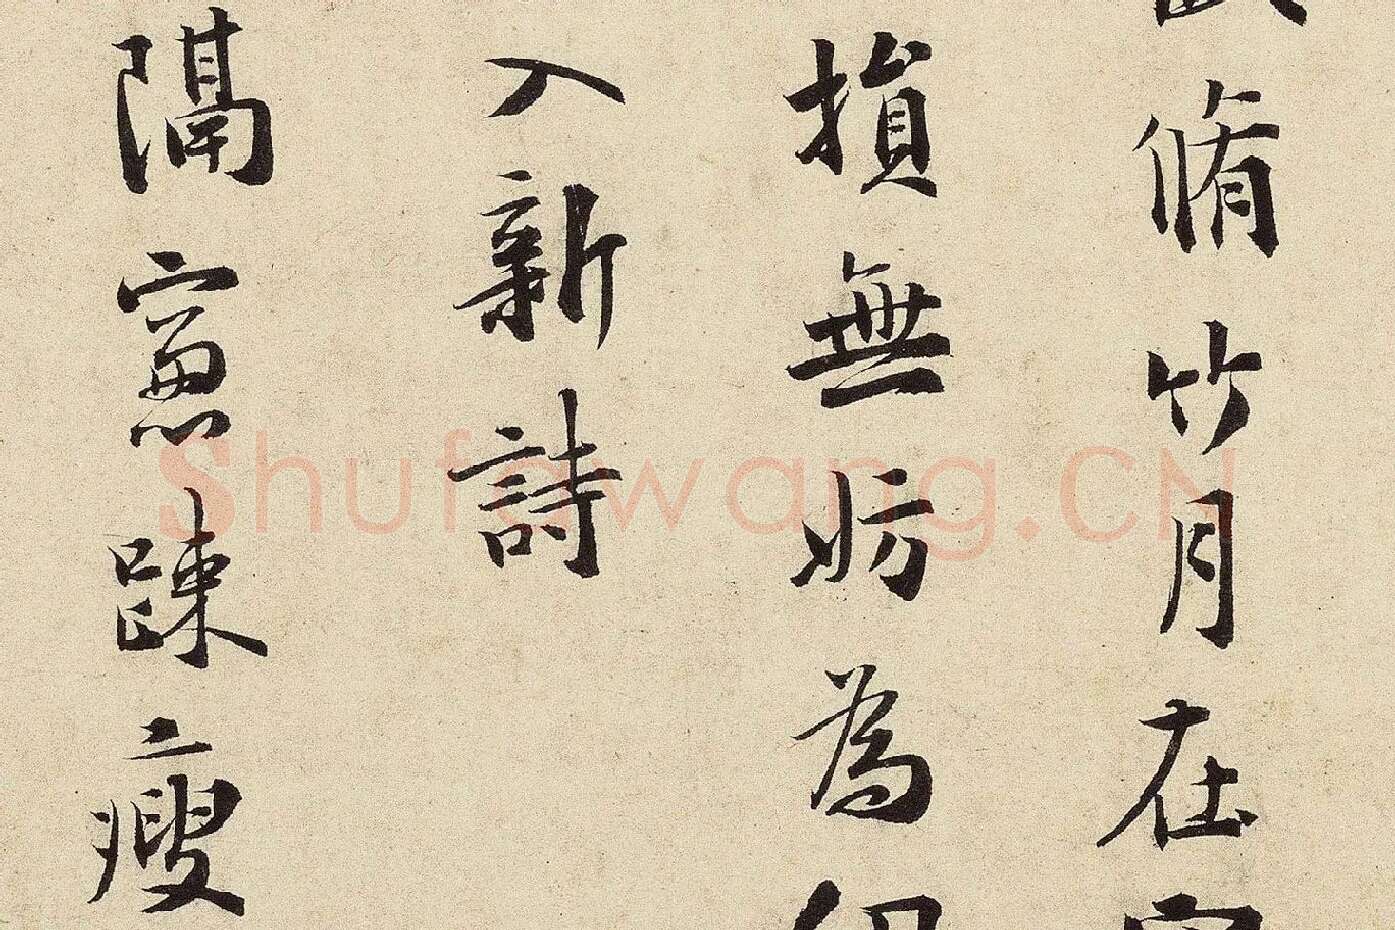 脩竹月在
損無妨為
入新詩
隔窓踈瘦
Shufawang.CN